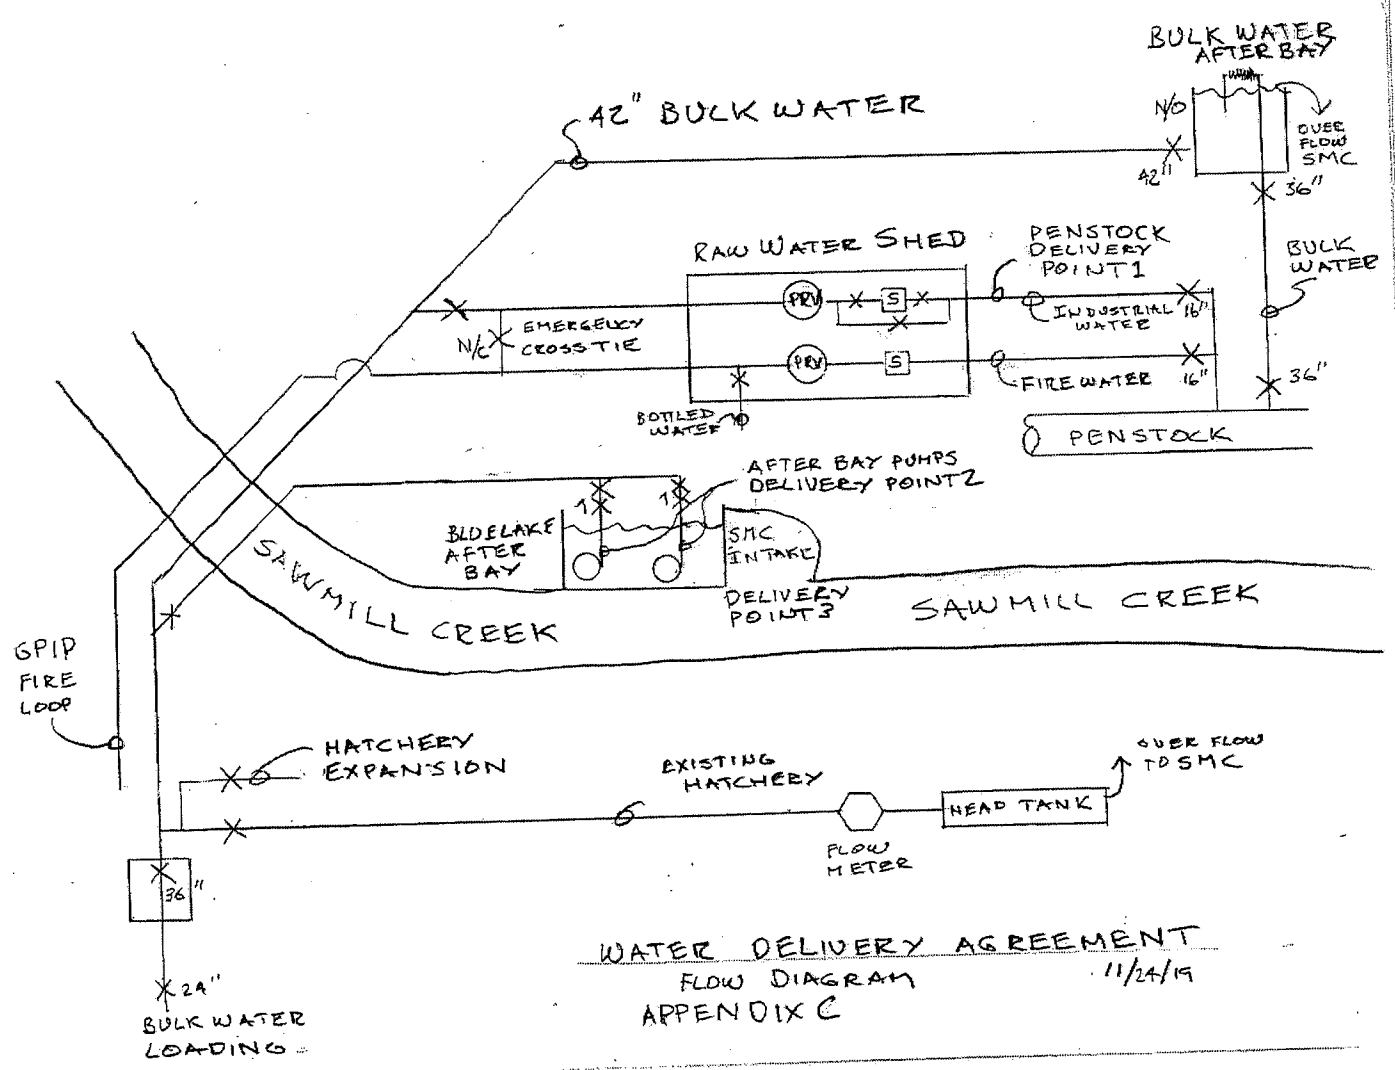 BULK WATER
AFTER BAY
42" BULK WATER
N/O
OVER
FLOW
SMC
42"
36"
RAW WATER SHED
PENSTOCK
DELIVERY
POINT 1
BULK
WATER
PRV
S
INDUSTRIAL
WATER
16"
N/C
EMERGENCY
CROSSTIE
PRV
S
FIRE WATER
16"
36"
BOTTLED
WATER
PENSTOCK
AFTER BAY PUMPS
DELIVERY POINT 2
BLUELAKE
AFTER
BAY
SMC
INTAKE
DELIVERY
POINT 3
SAWMILL CREEK
SAWMILL CREEK
GPIP
FIRE
LOOP
HATCHERY
EXPANSION
EXISTING
HATCHERY
OVER FLOW
TO SMC
HEAD TANK
FLOW
METER
36"
24"
BULK WATER
LOADING
WATER DELIVERY AGREEMENT
FLOW DIAGRAM 11/24/19
APPENDIX C